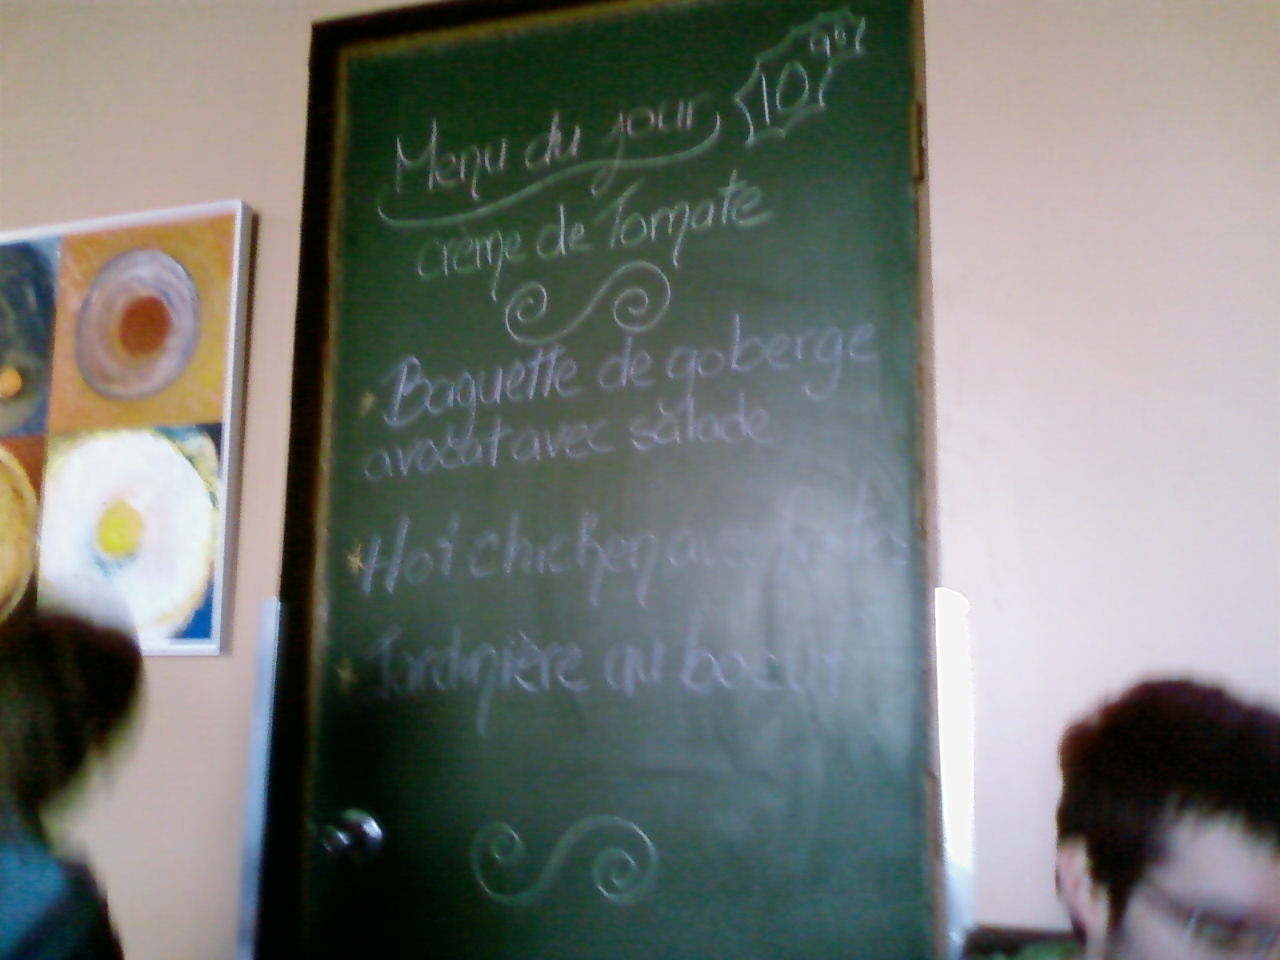 Menu du jour 10 95
crème de Tomate
* Baguette de goberge
avocat avec salade
* Hot chicken avec frites
* Jardinière au boeuf